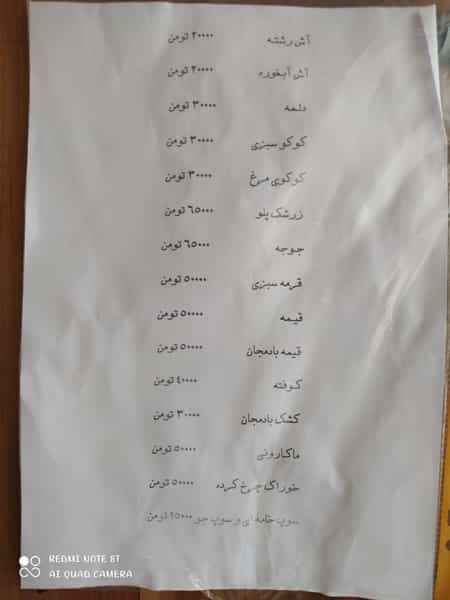 آش رشته ۲۰۰۰۰ تومن
آش آبغوره ۲۰۰۰۰ تومن
دلمه ۳۰۰۰۰ تومن
کوکو سبزی ۳۰۰۰۰ تومن
کوکوی مرغ ۳۰۰۰۰ تومن
زرشک پلو ۶۵۰۰۰ تومن
جوجه ۶۵۰۰۰ تومن
قرمه سبزی ۵۰۰۰۰ تومن
قیمه ۵۰۰۰۰ تومن
قیمه بادمجان ۵۰۰۰۰ تومن
کوفته ۴۰۰۰۰ تومن
کشک بادمجان ۳۰۰۰۰ تومن
ماکارونی ۵۰۰۰۰ تومن
خوراک چرخ کرده ۵۰۰۰۰ تومن
سوپ خامه ای و سوپ جو ۲۵۰۰۰ تومن
REDMI NOTE 8T
AI QUAD CAMERA